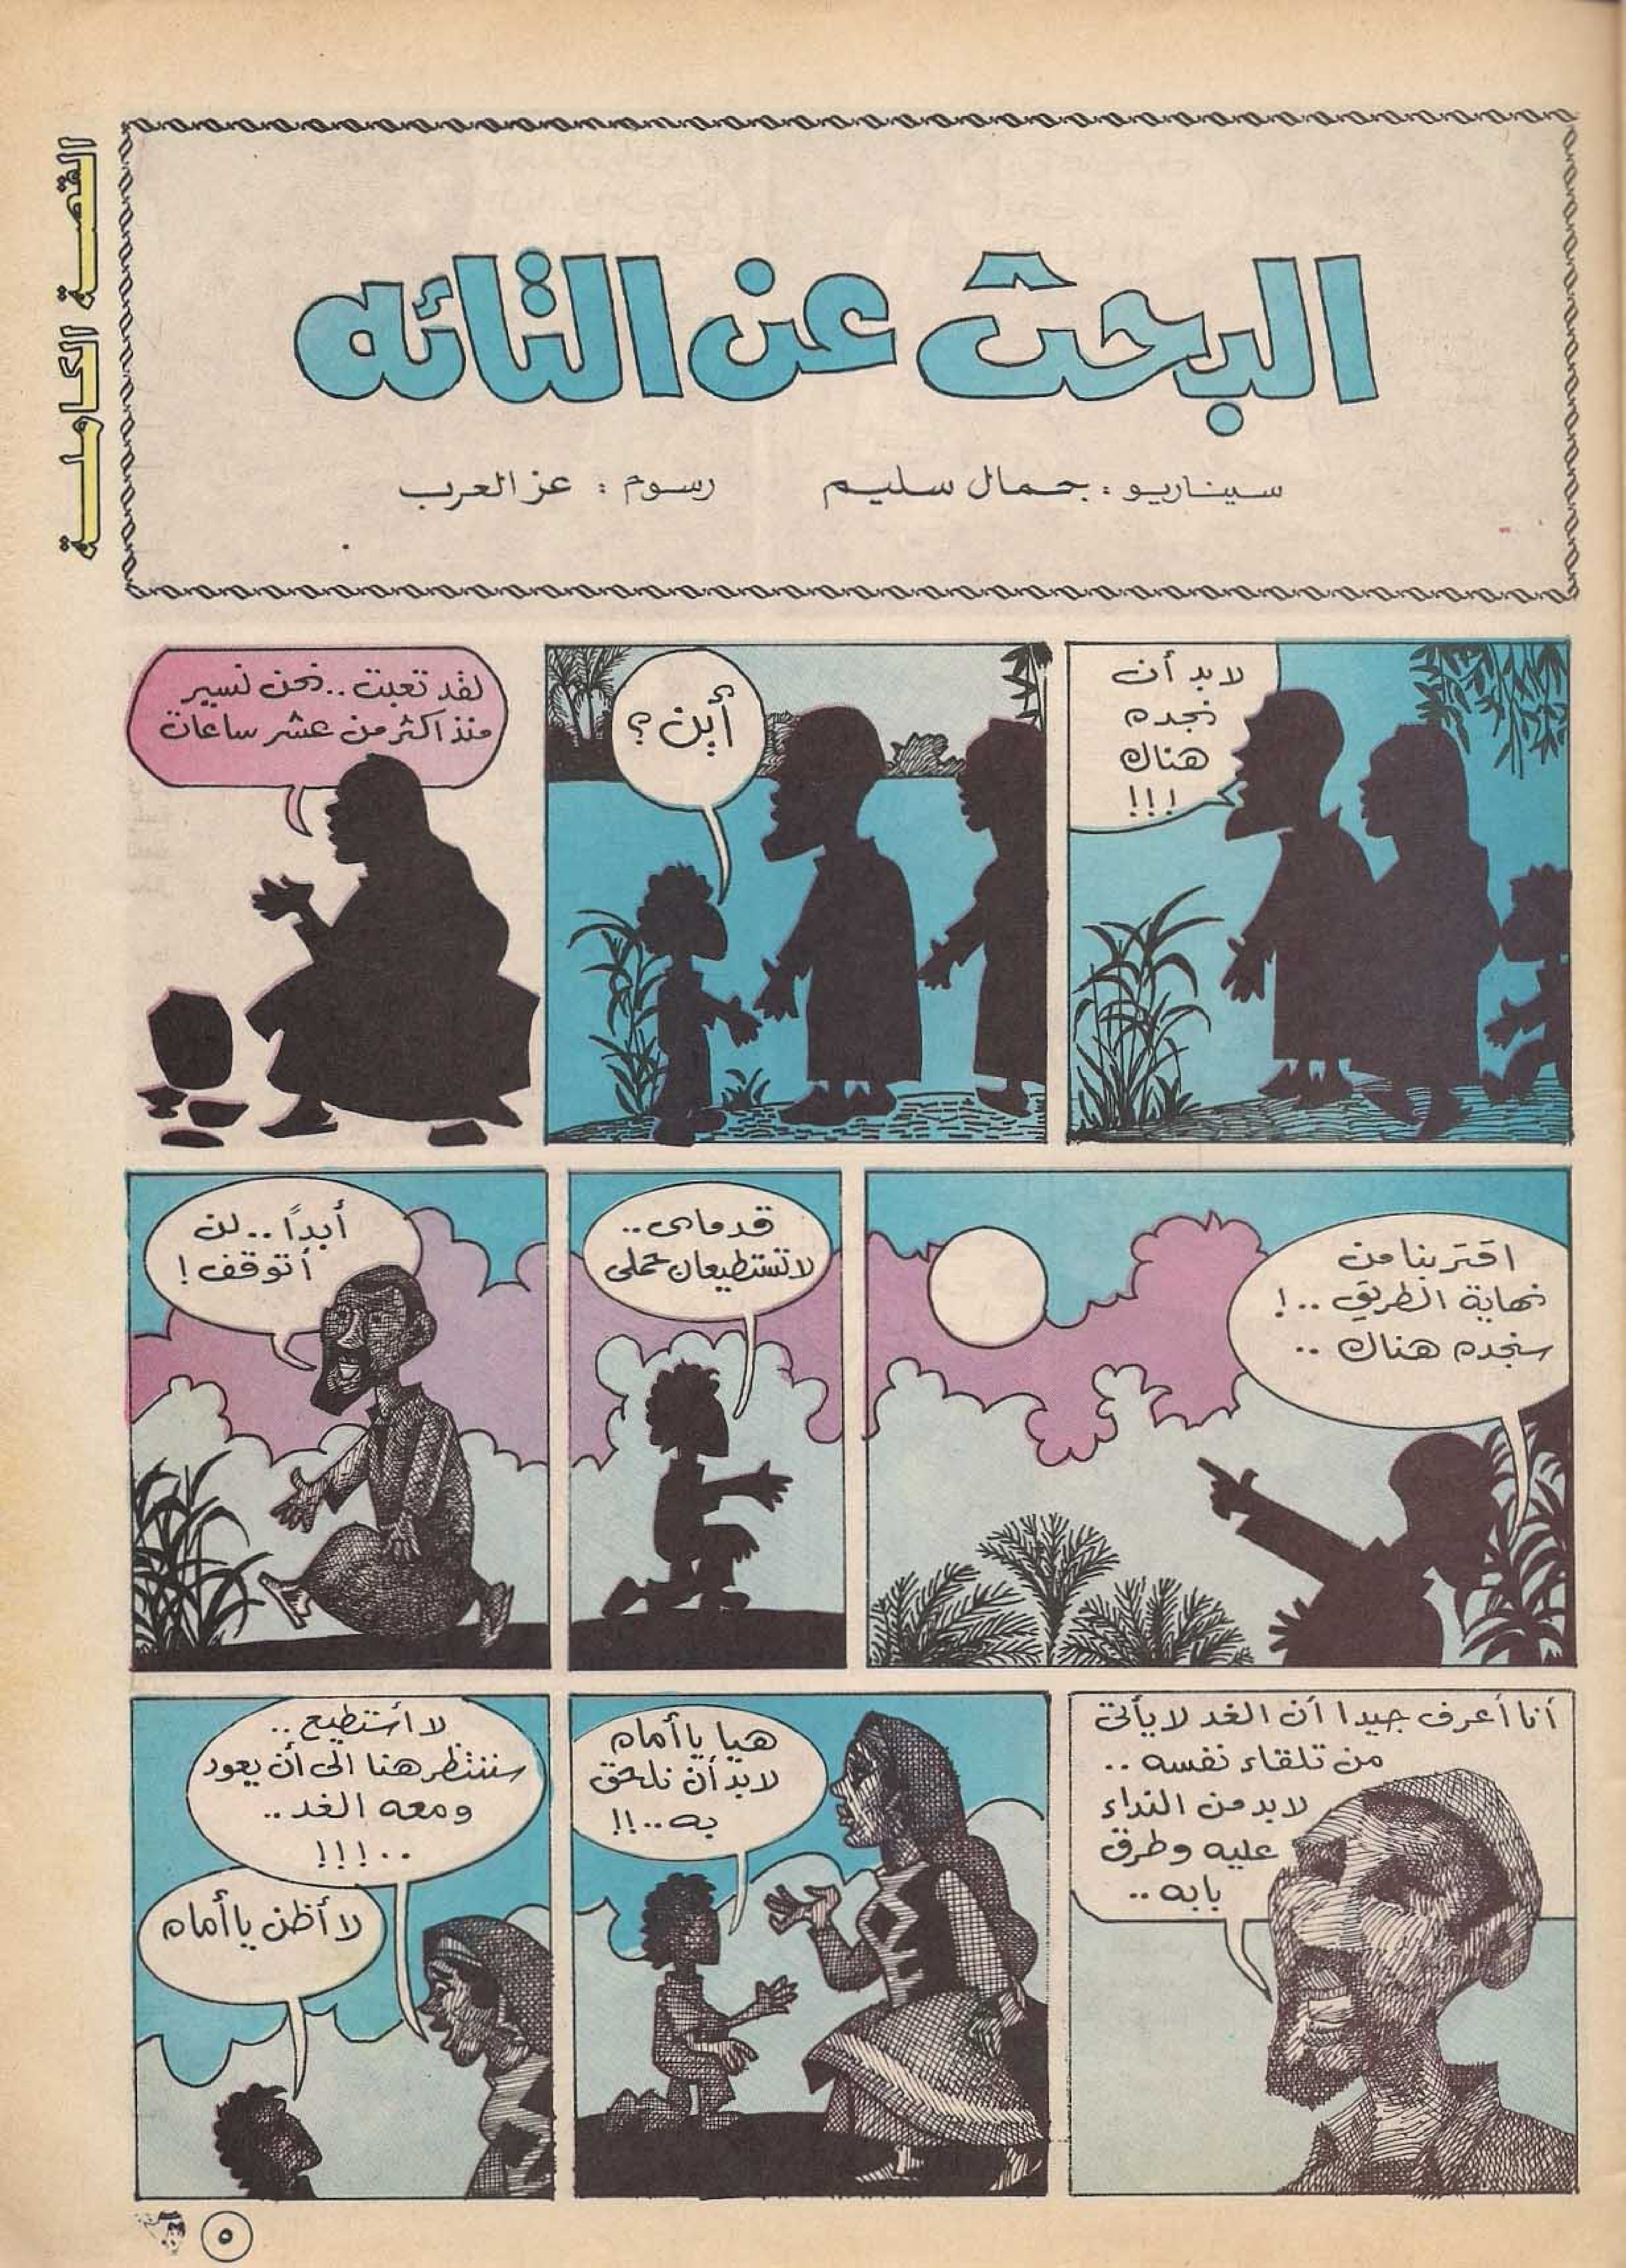 القصة الكاملة
البحث عن التائه
سيناريو : جمال سليم
رسوم : عز العرب
لابد أن
نجده
هناك
!!!
أين ؟
لقد تعبت .. نحن نسير
منذ اكثر من عشر ساعات
اقتربنا من
نهاية الطريق .. !
سنجده هناك ..
قدماى ..
لا تستطيعان حملى
أبدًا .. لن
أتوقف !
أنا أعرف جيدا أن الغد لا يأتى
من تلقاء نفسه ..
لابد من النداء
عليه وطرق
بابه ..
هيا يا أماه
لابد أن نلحق
به .. !!
لا أستطيع ..
سننتظر هنا الى أن يعود
ومعه الغد ..
.. !!!
لا أظن يا أماه
٥